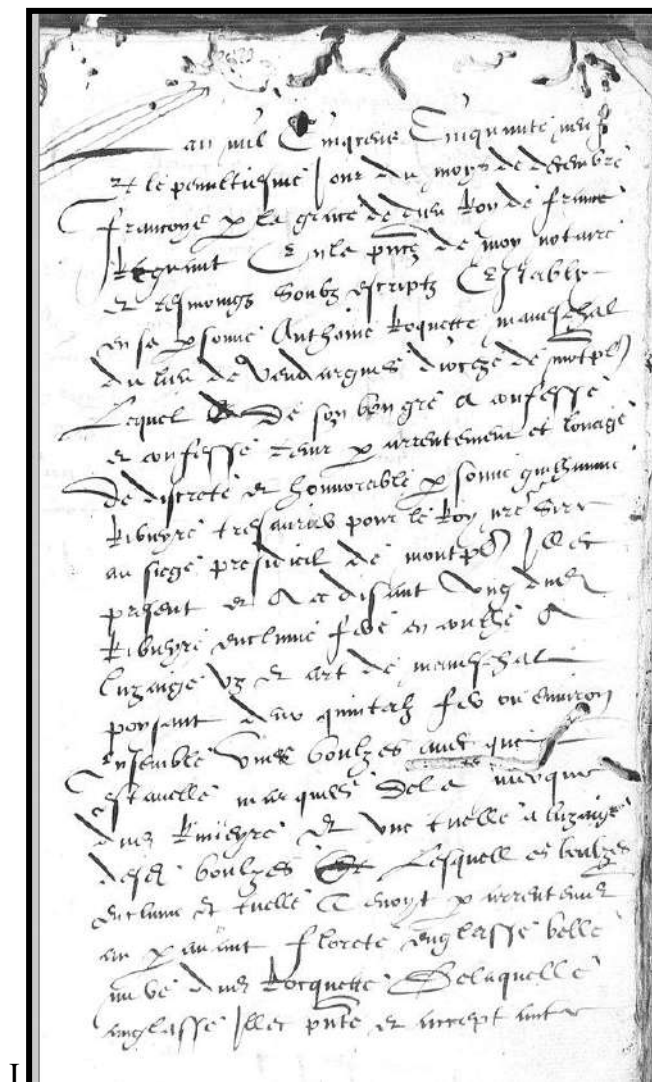 an mil Cinqcens Cinquante neuf
et le penultiesme Jour du moys de decembre
francoys p la grace de dieu Roy de france
Regnant En la pñce de moy notaire
et tesmoings soubz escriptz Establi
en sa p sonne Anthoine Roquette mareschal
du lieu de Vendargues diocese de montpr
Lequel de son bon gré a confessé
et confesse tenir p arrentement et louaige
De discrete et honnorable p sonne guilhaume
Ribeyre tresaurier pour le Roy nre Sire
au siege presidial de montpr Illec
present et a ce disant ung
Ribeyre enclume
luzaige et art de mareschal
poysant deux quintalz fer ou environ
ensemble boulzes avec
marques de la marque
et une tuelle a luzaige
boulzes Lesquelles boulzes
enclume et tuelle tenoyt p arrentement
au p avant florete englasse belle
Rocquette De laquelle
anglasse Illec pñte et accept
I